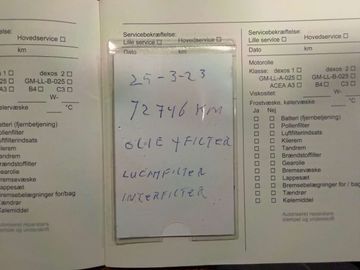 Servicebekræftelse:
Lille service ☐ Hovedservice ☐
Dato km
25-3-23
72746 KM
OLIE Y FILTER
LUCHTFILTER
INTERFILTER
Hovedservice ☐
km
dexos 2 ☐
GM-LL-B-025 ☐
B4 ☐ C3 ☐
W- °C
kølervæske
Batteri (fjernbetjening)
Pollenfilter
Luftfilterindsats
Kilerem
Tandrem
Brændstoffilter
Gearolie
Bremsevæske
Lappesæt
Bremsebelægninger for/bag
Tændrør
Kølemiddel
Autoriseret reparatørs
stempel og underskrift
Servicebekræftelse:
Lille service ☐ Hovedservice ☐
Dato km
Motorolie
Klasse: dexos 1 ☐ dexos 2 ☐
GM-LL-A-025 ☐ GM-LL-B-025 ☐
ACEA A3 ☐ B4 ☐ C3 ☐
Viskositet: W- °C
Frostvæske, kølervæske
Ja Nej
☐ ☐ Batteri (fjernbetjening)
☐ ☐ Pollenfilter
☐ ☐ Luftfilterindsats
☐ ☐ Kilerem
☐ ☐ Tandrem
☐ ☐ Brændstoffilter
☐ ☐ Gearolie
☐ ☐ Bremsevæske
☐ ☐ Lappesæt
☐ ☐ Bremsebelægninger for / bag
☐ ☐ Tændrør
☐ ☐ Kølemiddel
Autoriseret reparatørs
stempel og underskrift